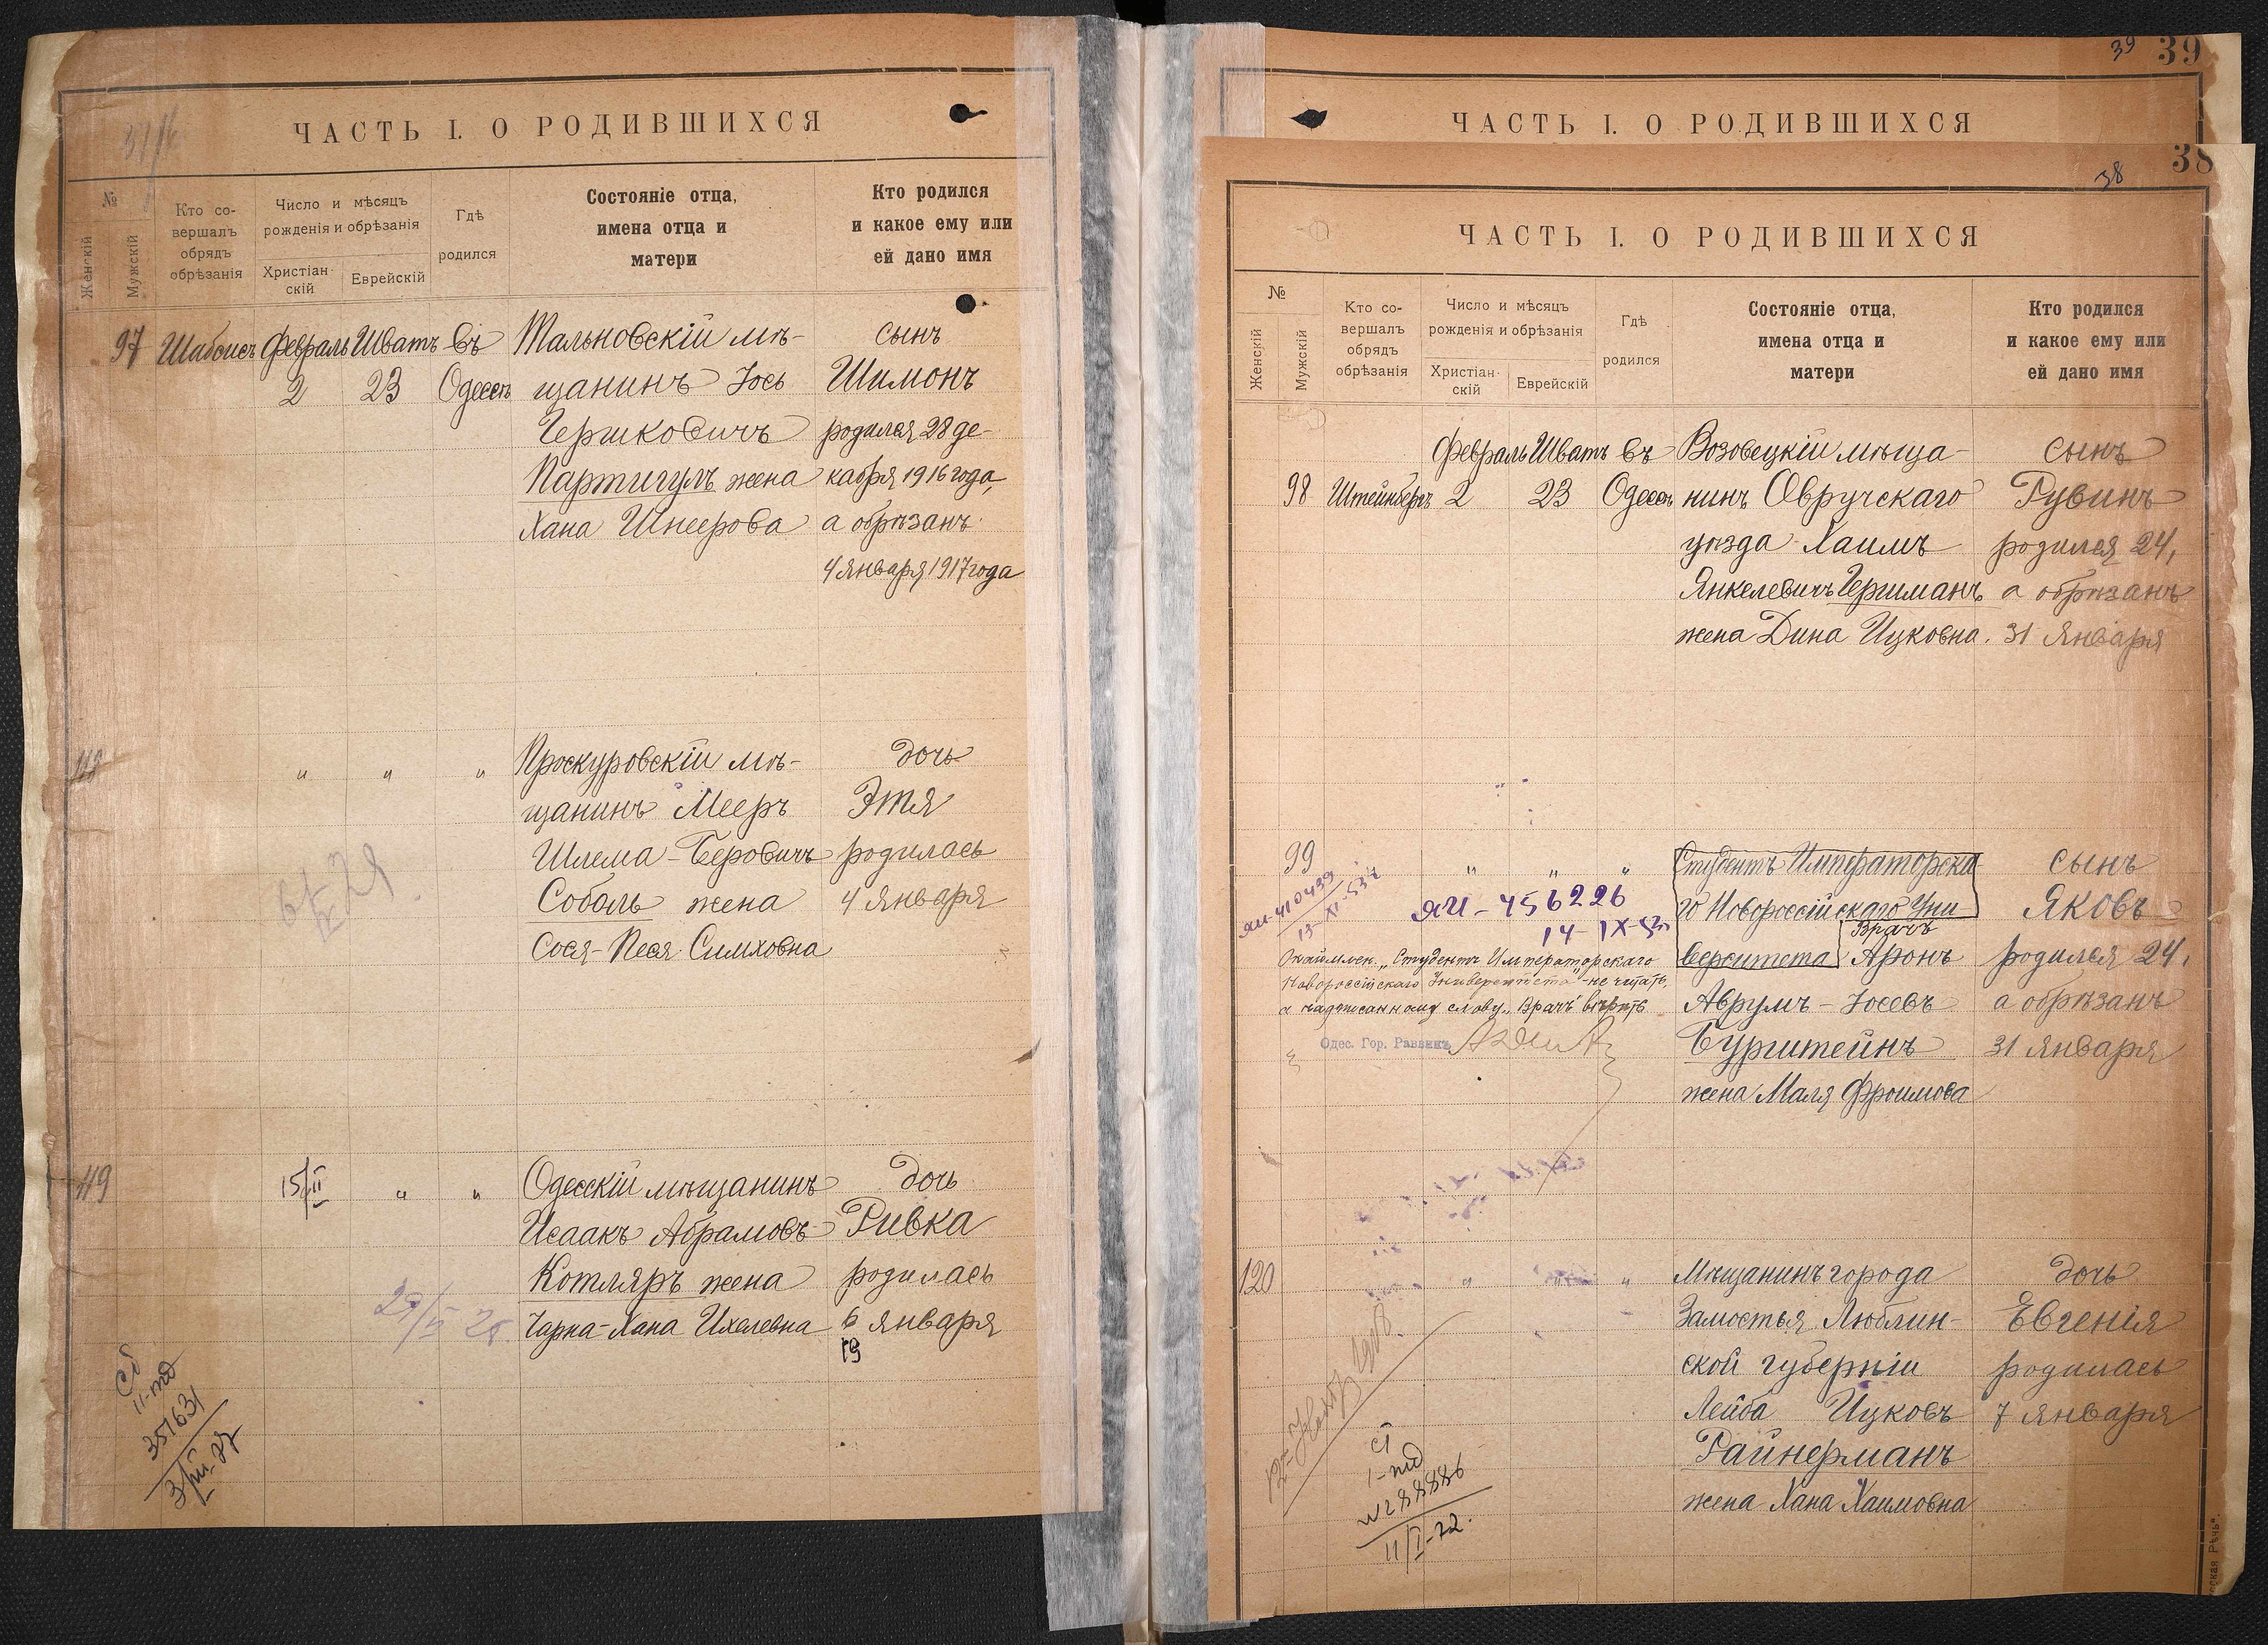 ЧАСТЬ I. О РОДИВШИХСЯ
№
Женскій
Мужскій
Кто со-
вершалъ
обрядъ
обрѣзанія
Число и мѣсяцъ
рожденія и обрѣзанія
Христіан-
скій
Еврейскій
Гдѣ
родился
Состояніе отца,
имена отца и
матери
Кто родился
и какое ему или
ей дано имя
97 Шабсисъ Февраль Шватъ въ Тальновскій мѣ- сынъ
2 23 Одессѣ щанинъ Іось Шимонъ
Гершковичъ родился 28 де-
Партигулъ жена кабря 1916 года,
Хана Шнеерова а обрѣзанъ
4 января 1917 года
118 " " " Проскуровскій мѣ- дочь
щанинъ Мееръ Этя
Шлема-Беровичъ родилась
Соболь жена 4 января
Сося-Песя Симховна
119 15/II " " Одесскій мѣщанинъ дочь
Исаакъ Абрамовъ Ривка
Котляръ жена родилась
Чарна-Хана Ихелевна 6 января
19
351631
39 39
ЧАСТЬ I. О РОДИВШИХСЯ
38 38
ЧАСТЬ I. О РОДИВШИХСЯ
№
Женскій
Мужскій
Кто со-
вершалъ
обрядъ
обрѣзанія
Число и мѣсяцъ
рожденія и обрѣзанія
Христіан-
скій
Еврейскій
Гдѣ
родился
Состояніе отца,
имена отца и
матери
Кто родился
и какое ему или
ей дано имя
Февраль Шватъ въ Возовецкій мѣща- сынъ
98 Штейнбергъ 2 23 Одессѣ нинъ Овручскаго Рувинъ
уѣзда Хаимъ родился 24,
Янкелевичъ Гершманъ а обрѣзанъ
жена Дина Ицковна. 31 января
99 " " " Студентъ Императорска- сынъ
ЯИ-410439
13-XI-53г
ЯИ-456226 го Новороссійскаго Уни Яковъ
14-IX-53г Врачъ
верситета Аронъ родился 24,
"Студентъ Императорскаго
Новороссійскаго Университета" - не читать,
а надписанному слову "Врачъ" вѣрить
Аврумъ-Іосевъ а обрѣзанъ
Одес. Гор. Раввинъ Бурштейнъ 31 января
жена Маля Фроимова
120 " " " Мѣщанинъ города дочь
Замостья Люблин- Евгенія
ской губерніи родилась
Лейба Ицковъ 7 января
Райнерманъ
жена Хана Хаимовна
11/I-72.